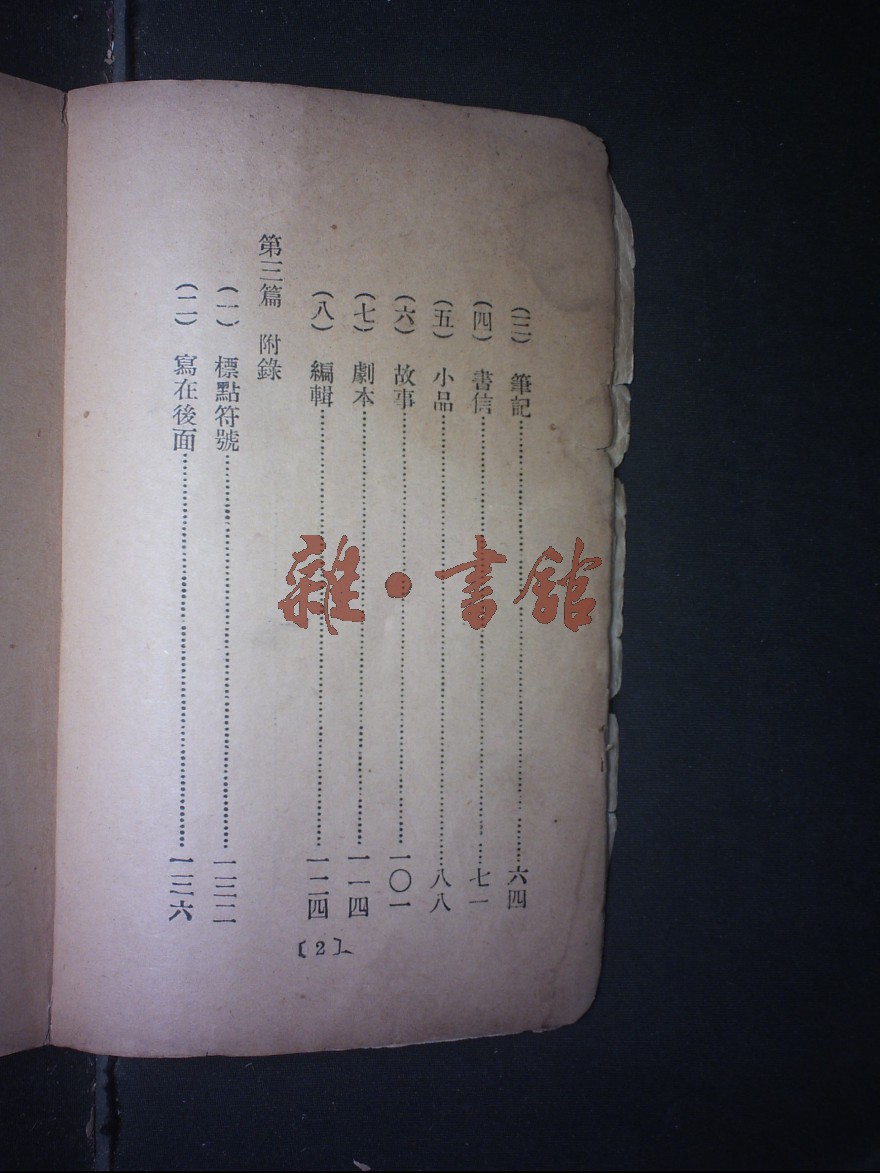 (三) 筆記……六四
(四) 書信……七一
(五) 小品……八八
(六) 故事……一〇一
(七) 劇本……一一四
(八) 編輯……一二四
第三篇 附錄
(一) 標點符號……一三二
(二) 寫在後面……一三六
〔2〕
雜·書館